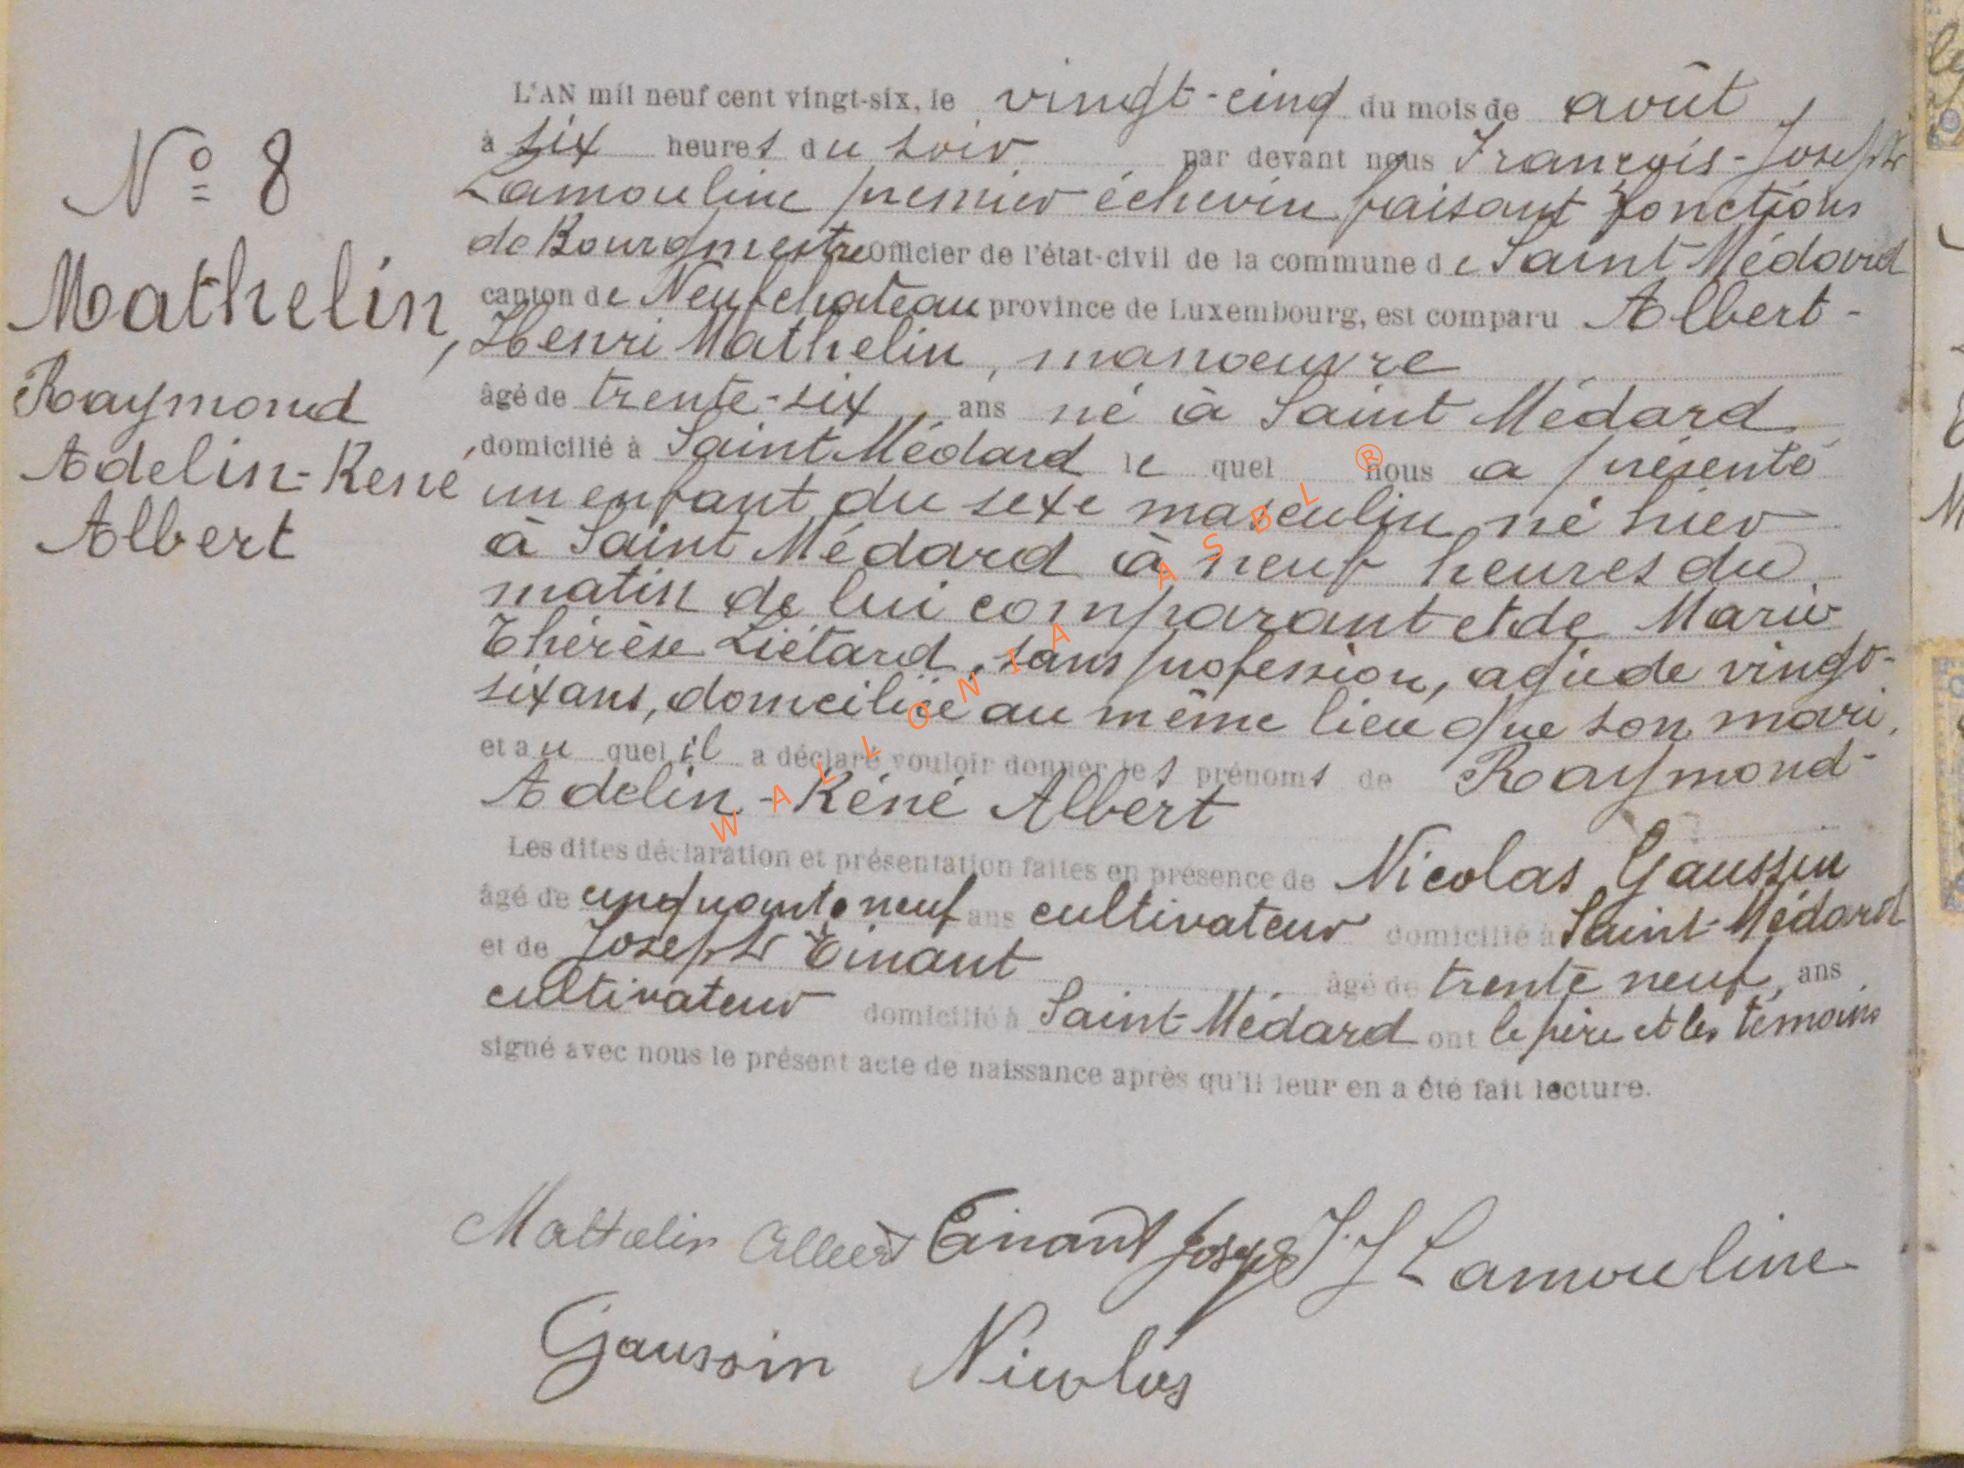 N° 8
Mathelin,
Raymond
Adelin-René
Albert
L'AN mil neuf cent vingt-six, le vingt-cinq du mois de août
à six heures du soir par devant nous François-Joseph
Lamouline premier échevin faisant fonctions
de Bourgmestre officier de l'état-civil de la commune de Saint-Médard
canton de Neufchateau province de Luxembourg, est comparu Albert-
Henri Mathelin, manoeuvre
âgé de trente-six ans né à Saint Médard
domicilié à Saint Médard le quel nous a présenté
un enfant du sexe masculin, né hier
à Saint Médard à neuf heures du
matin de lui comparant et de Marie
Thérèse Liétard, sans profession, agée de vingt-
six ans, domiciliée au même lieu que son mari,
et au quel il a déclaré vouloir donner les prénoms de Raymond-
Adelin-Réné Albert
Les dites déclaration et présentation faites en présence de Nicolas Gaussin
âgé de cinquante neuf ans cultivateur domicilié à Saint-Médard
et de Joseph Tinant âgé de trente neuf ans
cultivateur domicilié à Saint-Médard ont le père et les témoins
signé avec nous le présent acte de naissance après qu'il leur en a été fait lecture.
Mathelin Albert Tinant Joseph F. J Lamouline
Gaussin Nicolas
WALLONIA ASBL ®